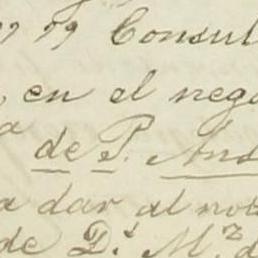 Consul
en el nego
de P. And
a dar al not
de D.ⁿ M.ᶻ d